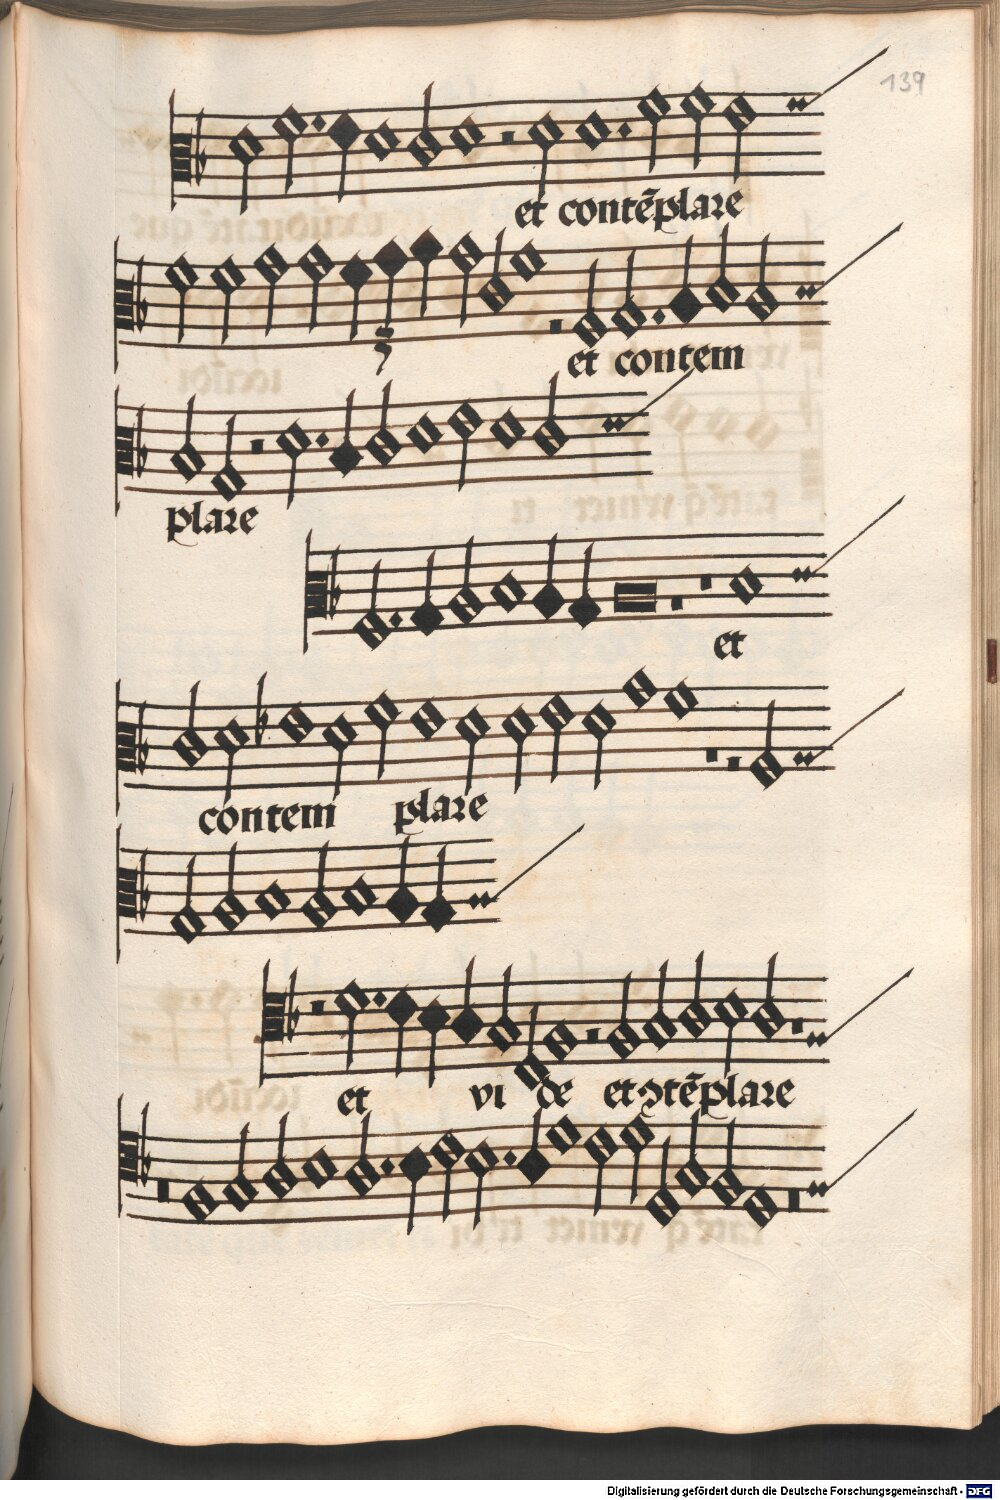 139
et contẽplare
et contem
plare
et
contem plare
et vi de et ꝯtẽplare
Digitalisierung gefördert durch die Deutsche Forschungsgemeinschaft - DFG